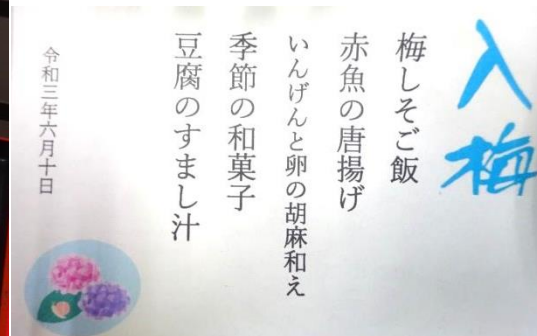 入梅
梅しそご飯
赤魚の唐揚げ
いんげんと卵の胡麻和え
季節の和菓子
豆腐のすまし汁
令和三年六月十日